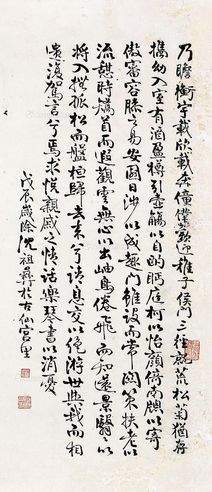 乃瞻衡宇載欣載奔僮僕歡迎稚子候門三徑就荒松菊猶存
攜幼入室有酒盈樽引壺觴以自酌眄庭柯以怡顏倚南牕以寄
傲審容膝之易安園日涉以成趣門雖設而常關策扶老以
流憩時矯首而遐觀雲無心以出岫鳥倦飛而知還景翳翳以
將入撫孤松而盤桓歸去來兮請息交以絕游世與我而相
遺復駕言兮焉求悅親戚之情話樂琴書以消憂
戊辰歲除沈祖於仙宮里